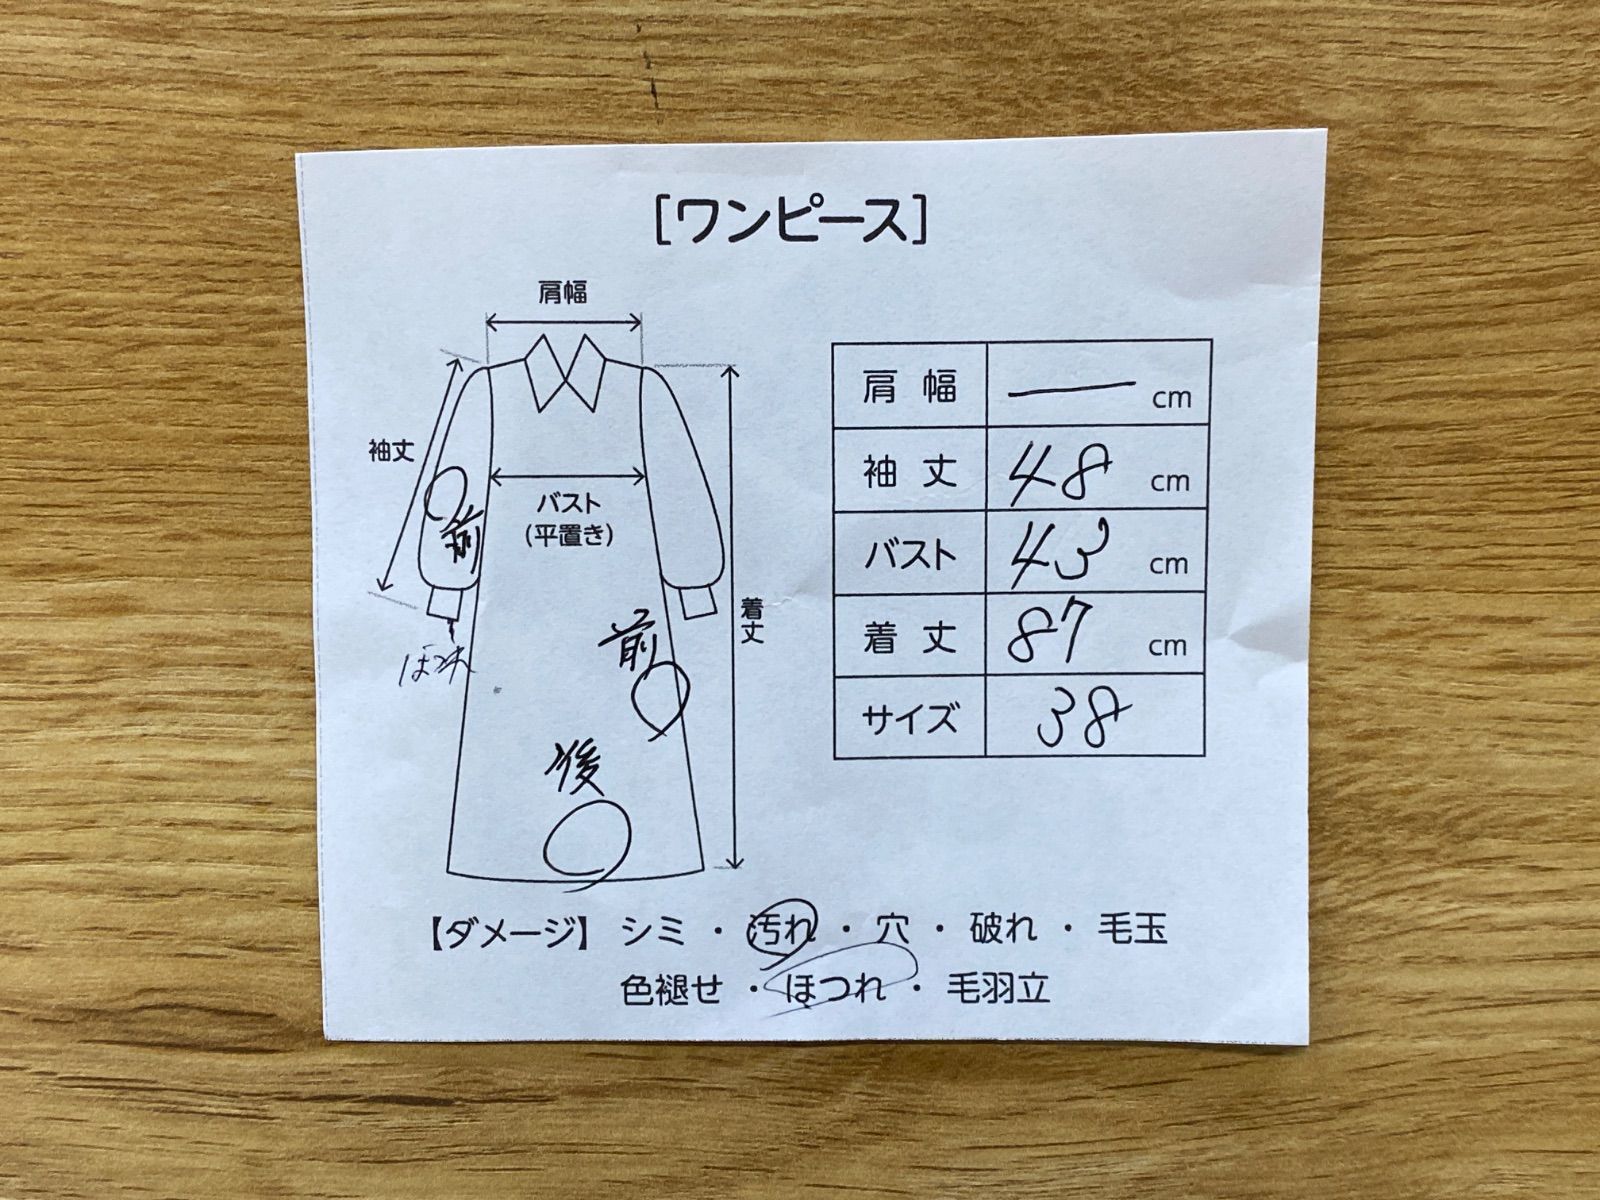 [ワンピース]
肩幅
袖丈
バスト
(平置き)
着丈
前
ほつれ
前
後
肩幅 — cm
袖丈 48 cm
バスト 43 cm
着丈 87 cm
サイズ 38
【ダメージ】 シミ ・ 汚れ ・ 穴 ・ 破れ ・ 毛玉
色褪せ ・ ほつれ ・ 毛羽立